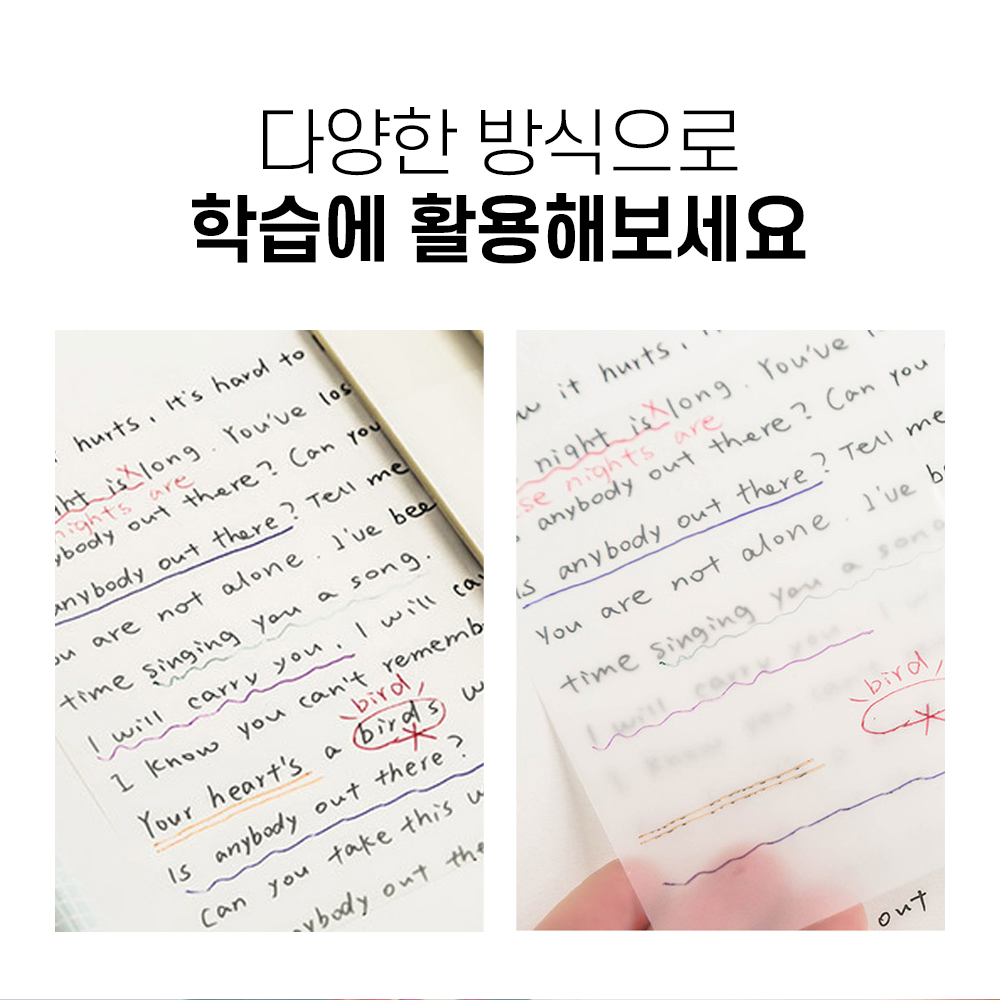 다양한 방식으로
학습에 활용해보세요
hurts, It's hard to
ght is long. You've los
nights are
ybody out there? Can you
anybody out there? Tell me
ou are not alone. I've bee
time singing you a song.
I will carry you, I will ca
I know you can't rememb
bird,
Your heart's a birds w
Is anybody out there?
Can you take this w
nybody out the
w it hurts,
night is long. You've l
se nights are
anybody out there? Can you
Is anybody out there? Tell me
You are not alone. I've be
time singing you a song
I will carry you
bird,
I know you
out